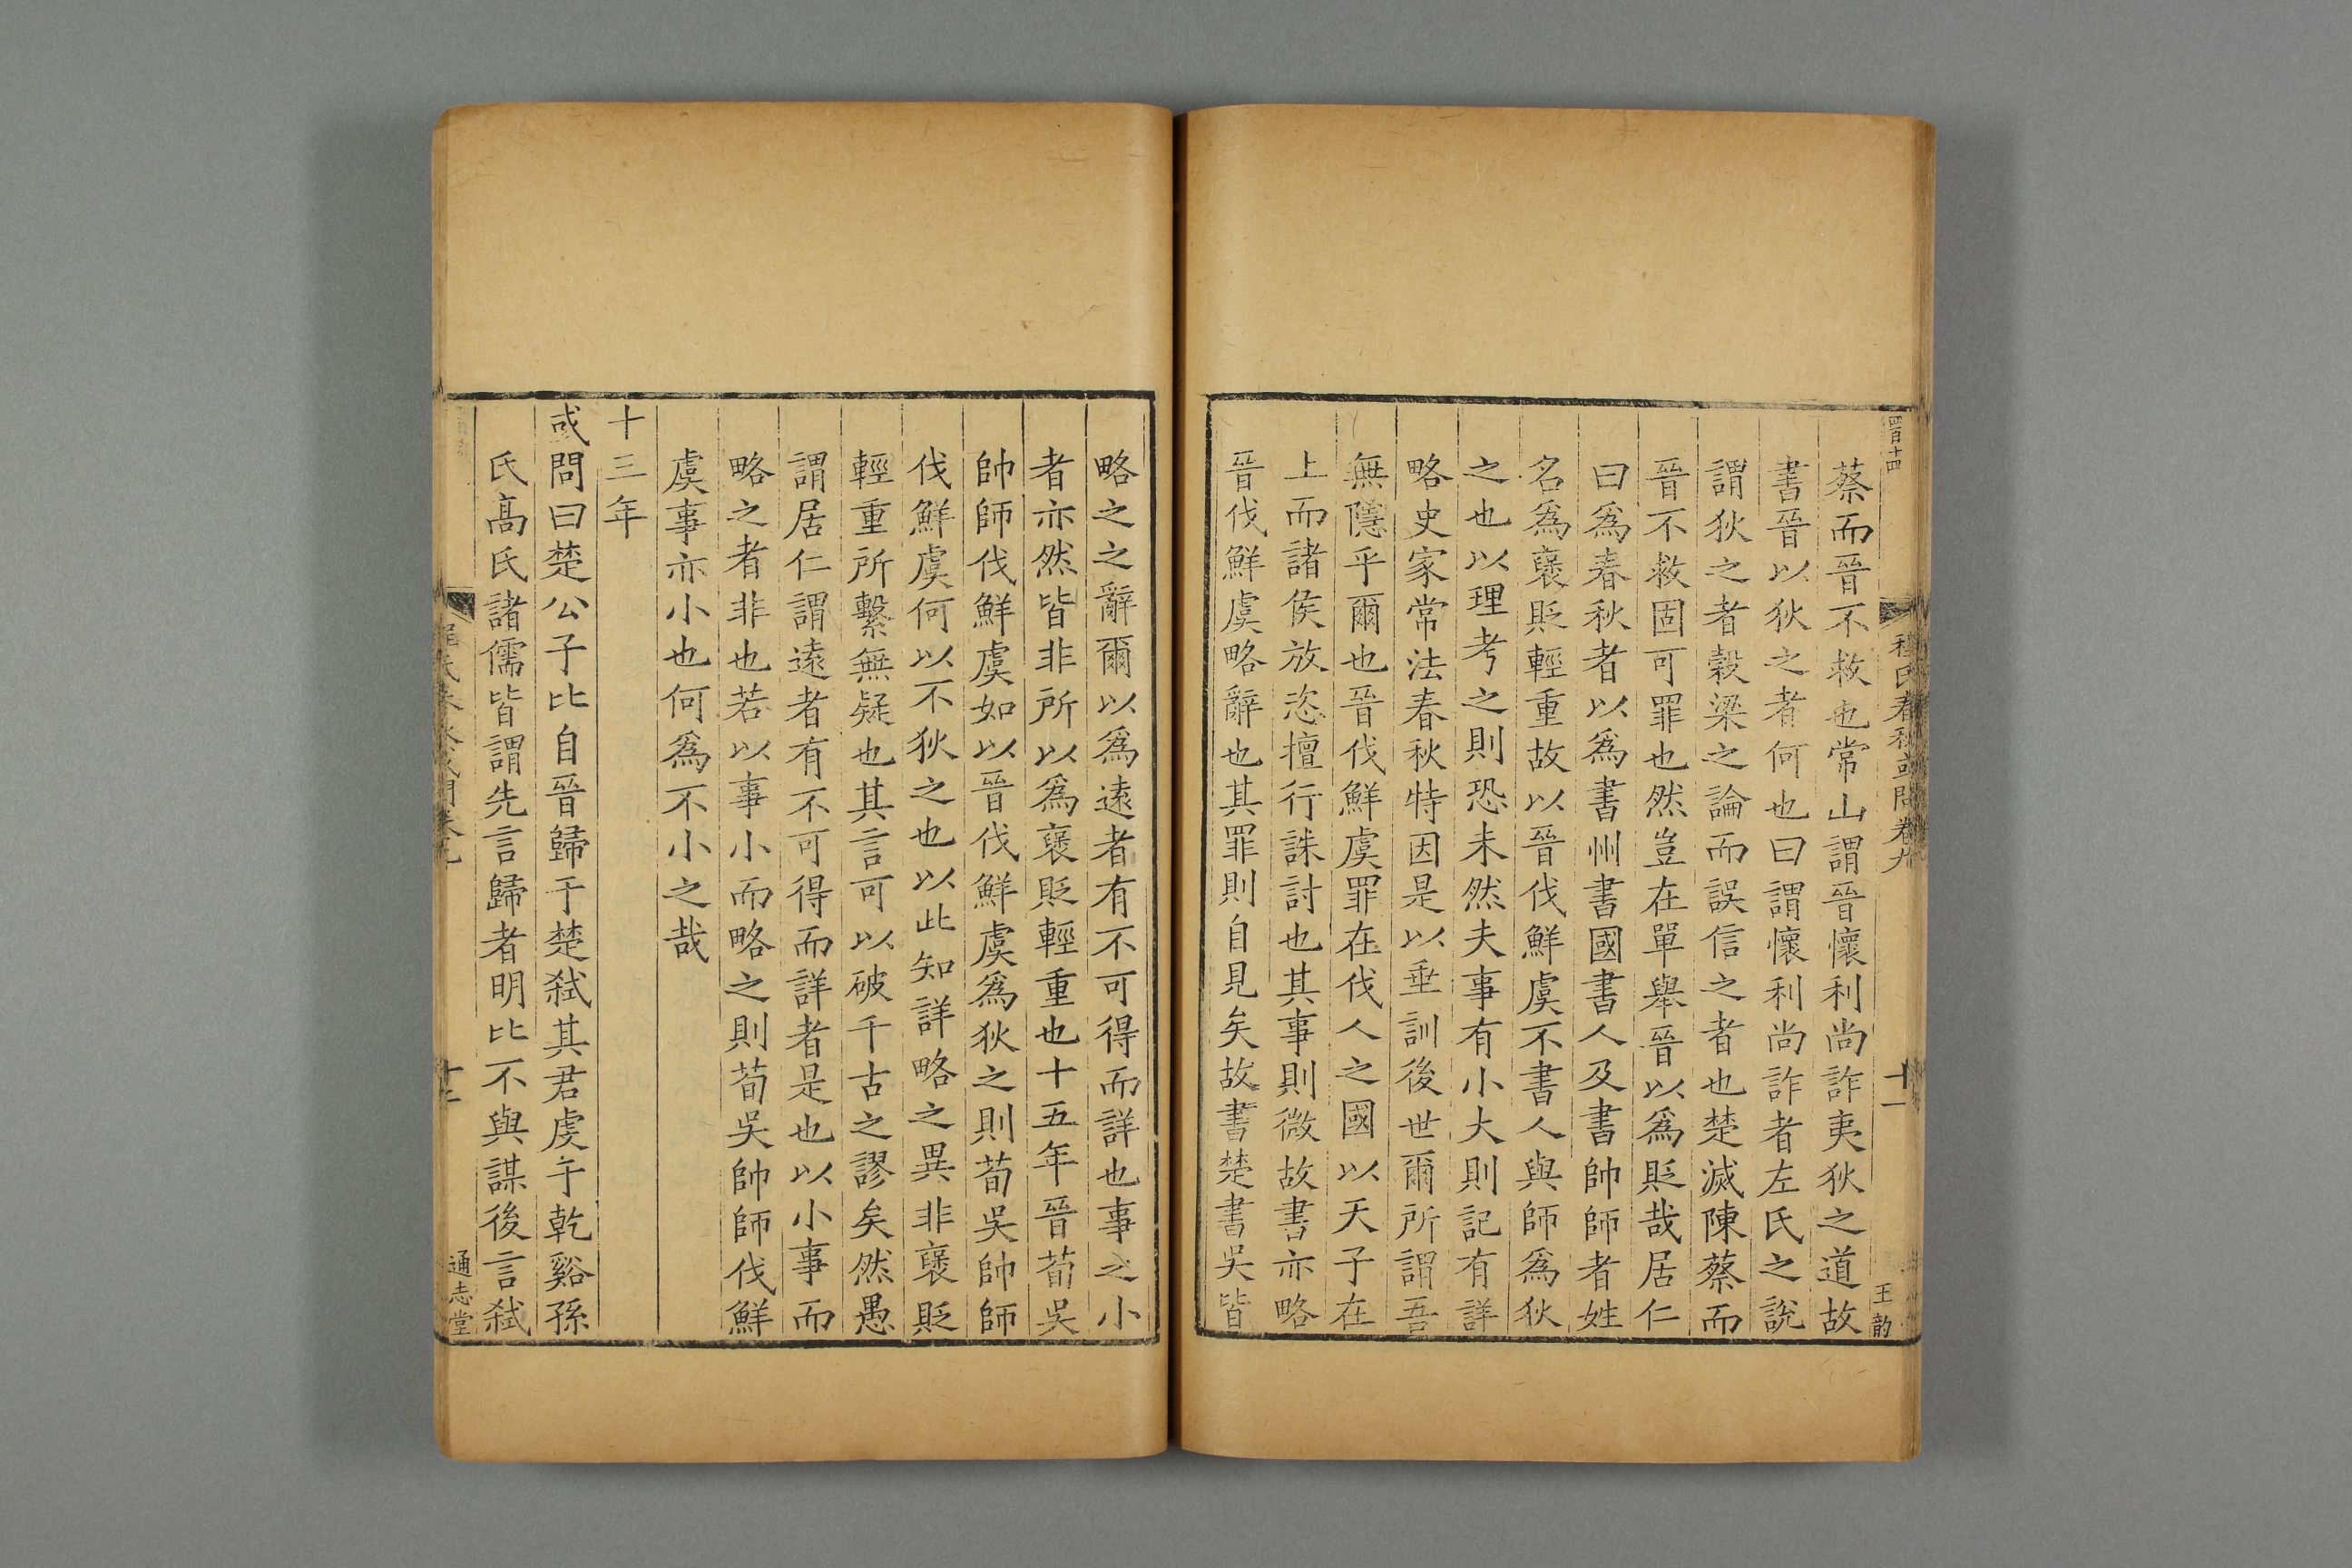 四百十四
程氏春秋或問卷九
十一
王韵
蔡而晉不救也常山謂晉懷利尚詐夷狄之道故
書晉以狄之者何也曰謂懷利尚詐者左氏之說
謂狄之者穀梁之論而誤信之者也楚滅陳蔡而
晉不救固可罪也然豈在單舉晉以為貶哉居仁
曰為春秋者以為書州書國書人及書帥師者姓
名為襃貶輕重故以晉伐鮮虞不書人與師為狄
之也以理考之則恐未然夫事有小大則記有詳
略史家常法春秋特因是以垂訓後世爾所謂吾
無隱乎爾也晉伐鮮虞罪在伐人之國以天子在
上而諸侯放恣擅行誅討也其事則微故書亦略
晉伐鮮虞略辭也其罪則自見矣故書楚書吳皆
略之之辭爾以為遠者有不可得而詳也事之小
者亦然皆非所以為襃貶輕重也十五年晉荀吳
帥師伐鮮虞如以晉伐鮮虞為狄之則荀吳帥師
伐鮮虞何以不狄之也以此知詳略之異非襃貶
輕重所繫無疑也其言可以破千古之謬矣然愚
謂居仁謂遠者有不可得而詳者是也以小事而
略之者非也若以事小而略之則荀吳帥師伐鮮
虞事亦小也何為不小之哉
十三年
或問曰楚公子比自晉歸于楚弑其君虔于乾谿孫
氏高氏諸儒皆謂先言歸者明比不與謀後言弑
通志堂